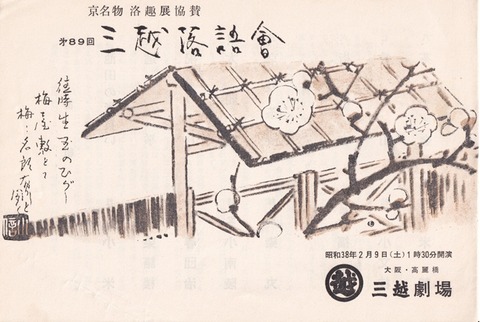 京名物 洛趣展協賛
第89回
三越落語會
梅屋敷とて
昭和38年2月9日(土)1時30分開演
大阪・高麗橋
越
三越劇場